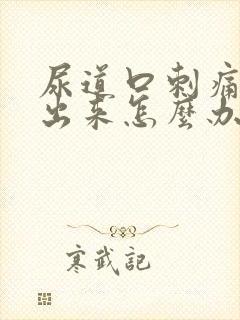 尿道口刺痛
出来怎麽办
寒武記